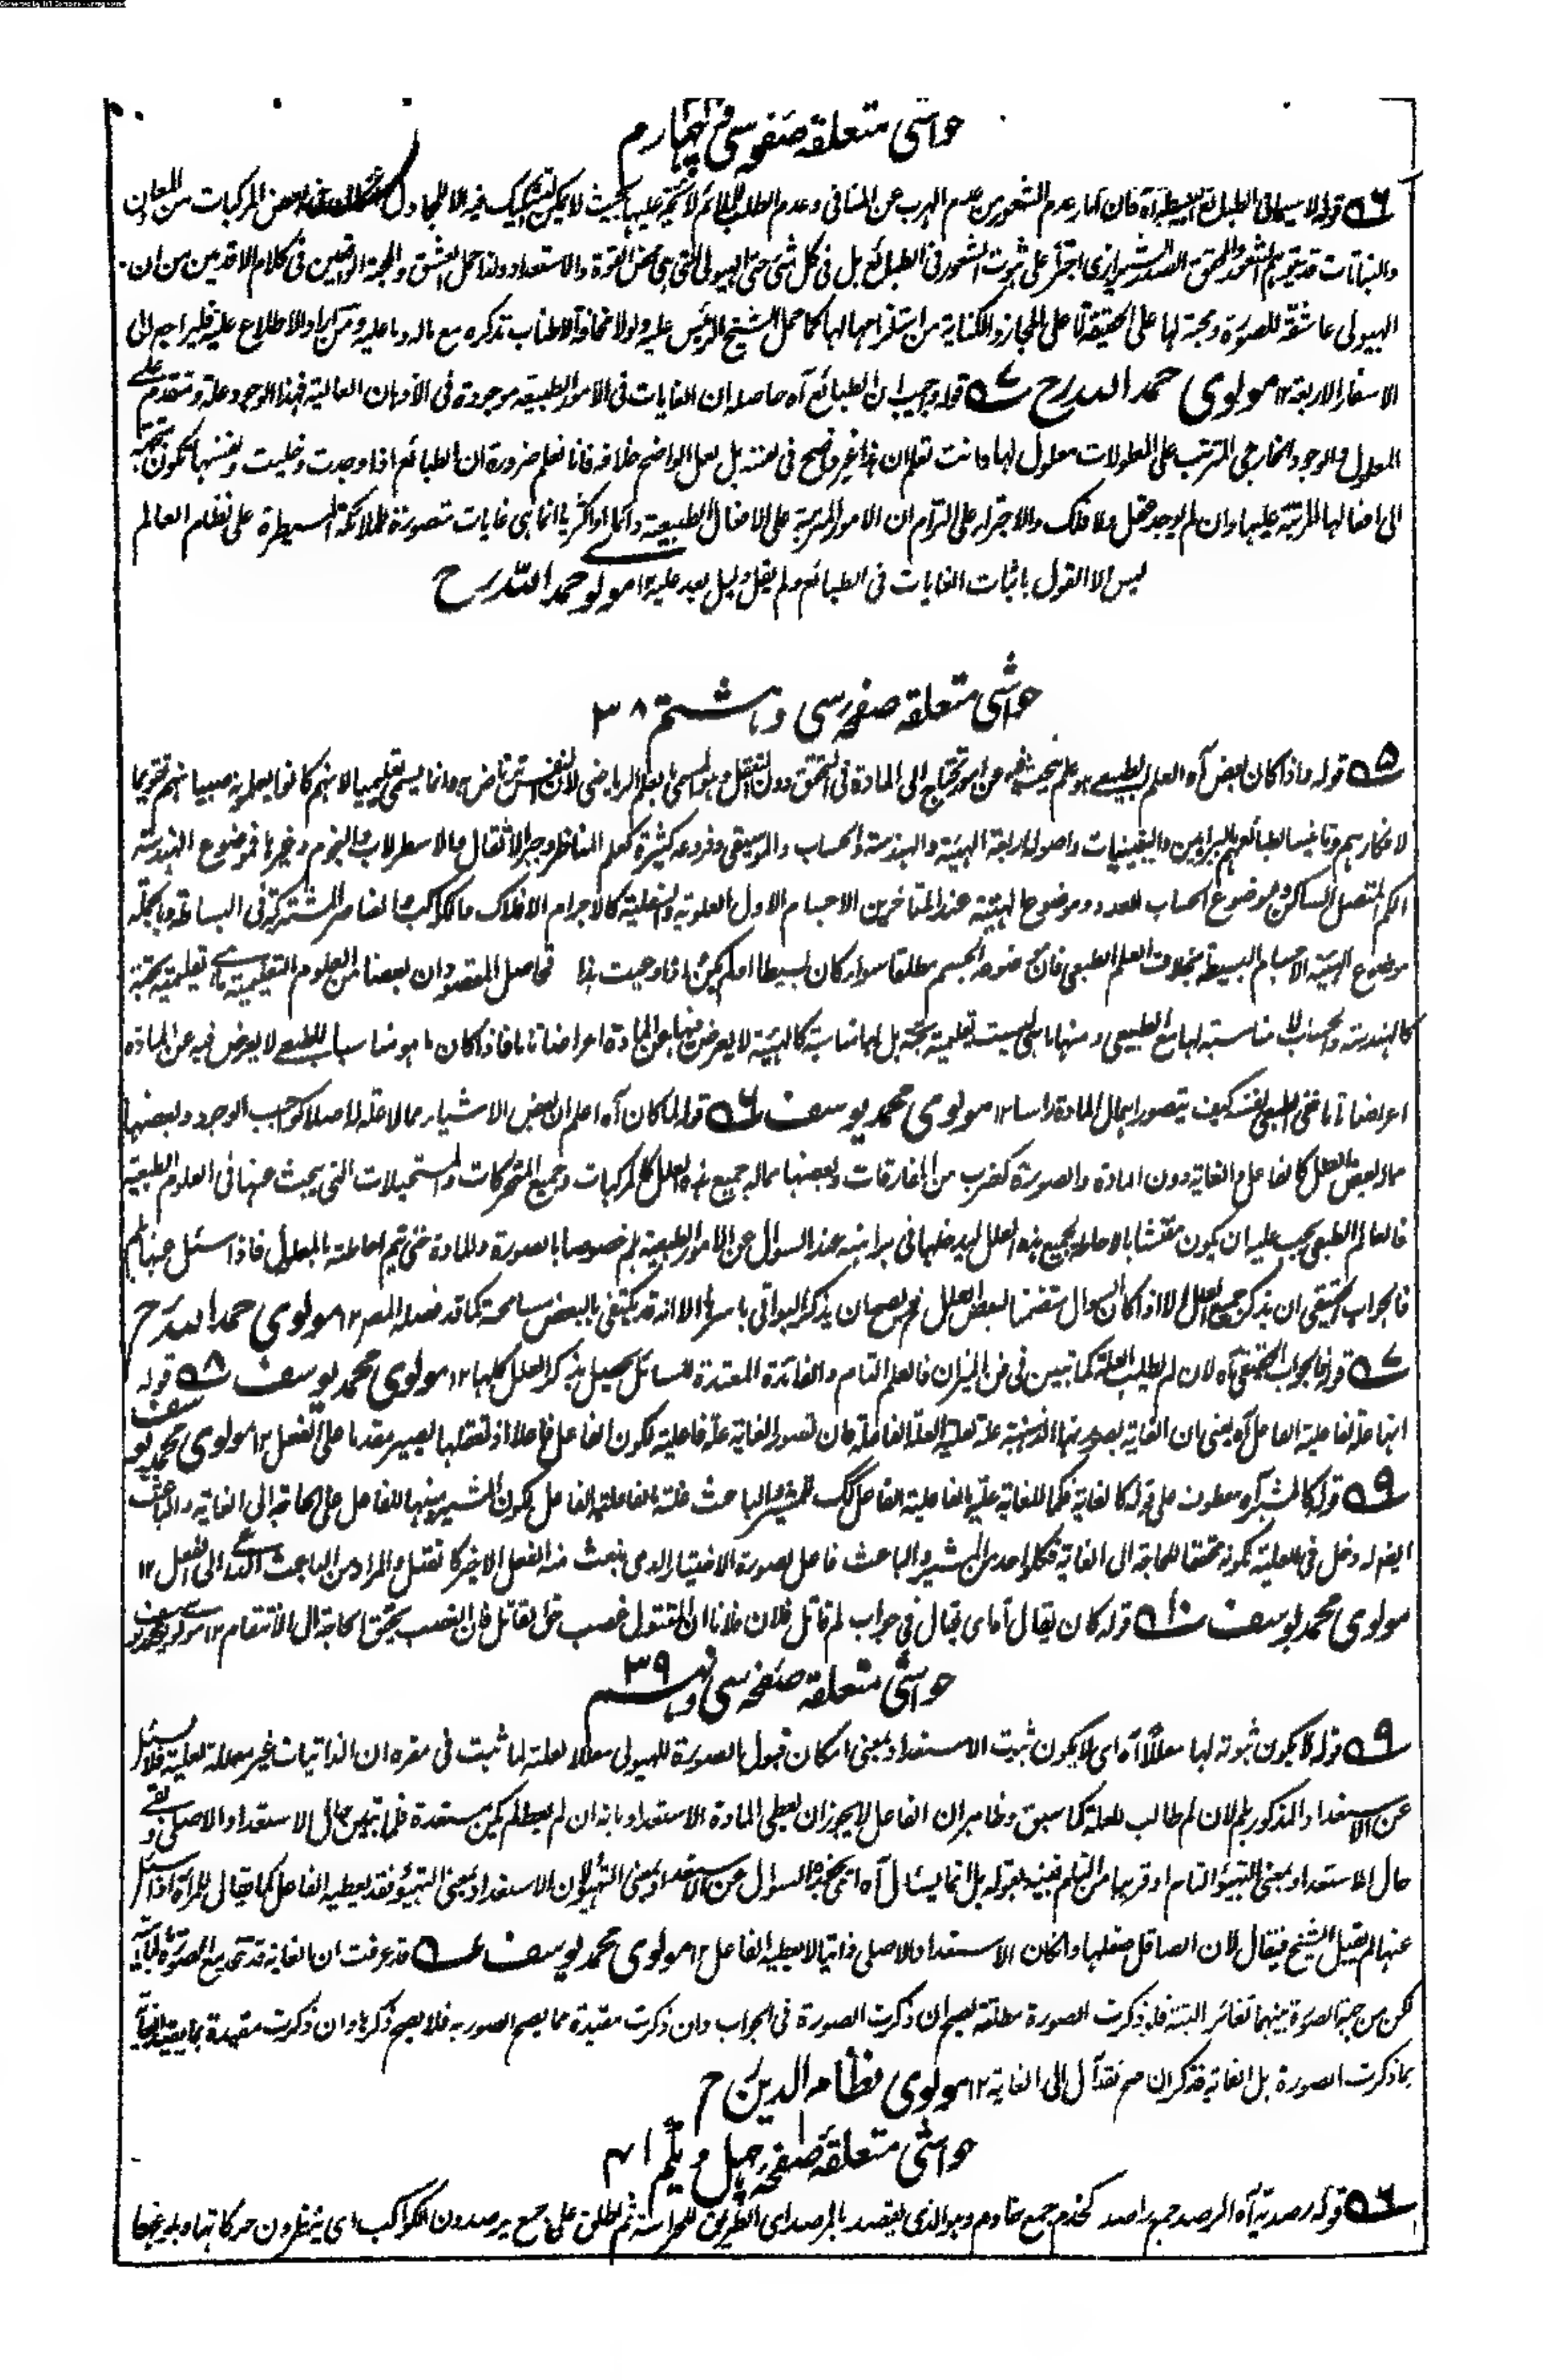 حواشی متعلقہ صفحہ سی و چهارم
قوله لا سيما في الطبائع البسيطة آه فان آثار عدم الشعور من عدم الهرب عن المنافی وعدم الطلب للملائم لائحة عليها بحيث لا يمكن التشكيك فيه الا للمجادل بعض المركبات من المعادن
والنباتات قد يتوهم الشعور والمحقق الصدر الشيرازی اجترأ على ثبوت الشعور فی الطبائع بل فی كل شئ حتى الهيولی التی هی محض القوة والاستعداد ولذا حمل العشق والمحبة الواقعين فی كلام الاقدمين من ان
الهيولی عاشقة للصورة ومحبة لها على الحقيقة لا على المجاز والكناية من استلزامها لها كما حمل الشيخ الرئيس عليه ولولا مخافة الاطناب لذكره مع ماله وما عليه ومن اراد الاطلاع عليه فليراجع الى
الاسفار الاربعة ۱۲ مولوی حمد الله رح ۷ قوله واجيب بان الطبائع آه حاصله ان الغايات فی الامور الطبيعية موجودة فی الاذهان العالية فهذا الوجود علة ومتقدم على
المعلول والوجود الخارجی المترتب على المعلولات معلول لها وانت تعلم ان هذا غير واضح فی نفسه بل لعل الواضح خلافه فانا نعلم ضرورة ان الطبائع اذا وجدت وخليت ونفسها تكون متجهة
الى افعالها المرتبة عليها وان لم يوجد عقل ولا فلك والاجتراء على التزام ان الامور المترتبة على الافعال الطبيعية دائما او اكثريا انما هی غايات متصورة للملائكة المسيطرة على نظام العالم
ليس الا القول باثبات الغايات فی الطبائع ولم يقل دليل بعد عليه ۱۲ مولوی حمد الله رح
حواشی متعلقہ صفحہ سی و ہشتم ۳۸
۵ قوله واذا كان بعض آه العلم الطبيعی هو علم يبحث فيه عن امور تحتاج الى المادة فی التحقق دون التعقل وهو المسمى بالعلم الرياضی لان النفس ترتاض به وانما يسمى تعليميا لانهم كانوا يعلمون به صبيانهم تقويما
لافكارهم وتانيسا لطبائعهم بالبراهين واليقينيات واصوله اربعة الهيئة والهندسة والحساب والموسيقی وفروعه كثيرة كعلم المناظر وجر الاثقال والاسطرلاب والنجوم وغيرها فموضوع الهندسة
الكم المتصل الساكن وموضوع الحساب العدد وموضوع الهيئة عند المتأخرين الاجسام الاول العلوية والسفلية كالاجرام الافلاك والكواكب والعناصر المشتركة فی البساطة وبالجملة
موضوع الهيئة الاجسام البسيطة بخلاف العلم الطبعی فان موضوعه الجسم مطلقا سواء كان بسيطا ام لم يكن اذا وعيت هذا فحاصل المقصود ان بعضا من العلوم التعليمية ما هی تعليمية بحتة
كالهندسة والحساب لا مناسبة لها مع الطبيعی ومنها ما هی ليست تعليمية بحتة بل لها مناسبة كالهيئة لا يعرض فيها عن المادة اعراضا تاما فاذا كان ما هو مناسبا للطبعی لا يعرض فيه عن المادة
اعراضا تاما ففی الطبعی نفسه كيف يتصور اهمال المادة راسا ۱۲ مولوی محمد يوسف ۶ قوله لما كان آه اعلم ان بعض الاشياء مما لا علة له اصلا كواجب الوجود وبعضها
مما له بعض العلل كالفاعل والغاية دون المادة والصورة كضرب من المفارقات وبعضها مما له جميع هذه العلل كالمركبات وجميع المتحركات والمستحيلات التی يبحث عنها فی العلوم الطبيعية
فالعالم الطبعی يجب عليه ان يكون مفتشا بالاحاطة بجميع هذه العلل ليدخلها فی براهينه عند السوال عن الامور الطبيعية بلم خصوصا بالصورة والمادة حتى يتم احاطته بالمعلول فاذا سئل عنها بلم
فالجواب الحقيقی ان يذكر جميع العلل الا اذا كان السوال متضمنا لبعض العلل فح يصح ان يذكر البواقی باسرها الا انه قد يكتفی بالبعض مسامحة كما قد فصله المصـ ۱۲ مولوی حمد الله رح
۷ قوله فالجواب الحقيقی آه لان لم لطلب العلة كما تبين فی فن الميزان فالعلم التام والفائدة المعتدة للسائل يحصل بذكر العلل كلها ۱۲ مولوی محمد يوسف ۸ قوله
انها علة لفاعلية الفاعل آه يعنی بان الغاية بصورتها الذهنية علة لعلية العلة الفاعلة فان تصور الغاية علة فاعلية لكون الفاعل فاعلا اذ تعقلها يصير مقدما على الفعل ۱۲ مولوی محمد يوسف
۹ قوله كالمشير آه معطوف على قوله كالغاية فكما للغاية علية بالفاعلية الفاعل كك للمشير والباعث علة لفاعلية الفاعل يكون المشير منبها للفاعل على الحاجة الى الغاية والباعث
ايضا له دخل فی العلية لكونه محققا للحاجة الى الغاية فكل واحد من المشير والباعث فاعل لصورة الاختيار الذی ينبعث منه الفعل الاخير كالقتل والمراد من الباعث الداعی الى الفعل ۱۲
مولوی محمد يوسف ۱۰ قوله كان يقال آه ای يقال فی جواب لم قاتل فلان فلانا ان المقتول غصب حق القاتل فان الغصب يحقق الحاجة الى الانتقام ۱۲ مولوی محمد يوسف
حواشی متعلقہ صفحہ سی و نہم ۳۹
۹ قوله لا يكون ثبوته لها معللا آه ای لا يكون ثبوت الاستعداد بمعنى امكان قبول الصورة للهيولی معللا لعلة لما ثبت فی مقره ان الذاتيات غير معللة لعلية فلا يسئل
عن الاستعداد المذكور بلم لان لم طالب للعلة كما سبق وظاهر ان الفاعل لا يجوز ان يعطی المادة الاستعداد بانه ان لم يعط لم يكن مستعدة فلما تبين حال الاستعداد الاصلی بقی
حال الاستعداد بمعنى التهيؤ التام او قريبا من التام فبينه بقوله بل انما يسئال آه ای يتجه السوال عن الاستعداد بمعنى التهيؤ لان الاستعداد بمعنى التهيؤ فقد يعطيه الفاعل كما يقال للمرآة اذا سئل
عنها لم تقبل الشبح فيقال لان الصاقل صقلها واذ كان الاستعداد الاصلی ذاتيا لا يعطيه الفاعل ۱۲ مولوی محمد يوسف قد عرفت ان الغاية قد تتحد مع الصورة بالذات
لكن من جهة الصورة بينهما تغائر البتة فلو ذكرت الصورة مطلقة يصح ان ذكرت الصورة فی الجواب وان ذكرت مقيدة مما يصح الصورية فلا يصح ذكرها وان ذكرت مقيدة بما يفيد الغاية
بما ذكرت الصورة بل الغاية فذكر ان صح نقدآل الى الغاية ۱۲ مولوی نظام الدین رح
حواشی متعلقہ صفحہ چهل و یکم ۴۱
۶ قوله رصدية آه الرصد جمع راصد كخدم جمع خادم وهو الذی يقصد بالمرصد ای الطريق للحراسة ثم اطلق على جمع يرصدون الكواكب ای ينتظرون حركاتها وبلوغها